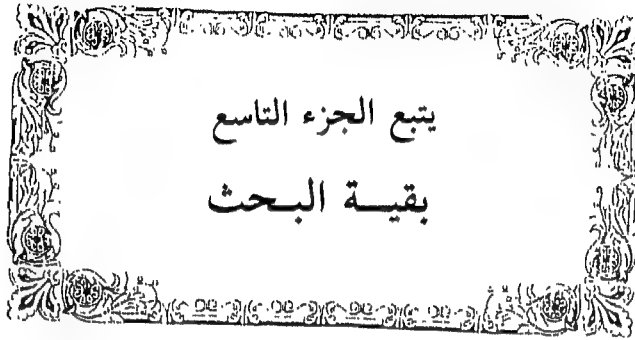 يتبع الجزء التاسع
بقية البحث